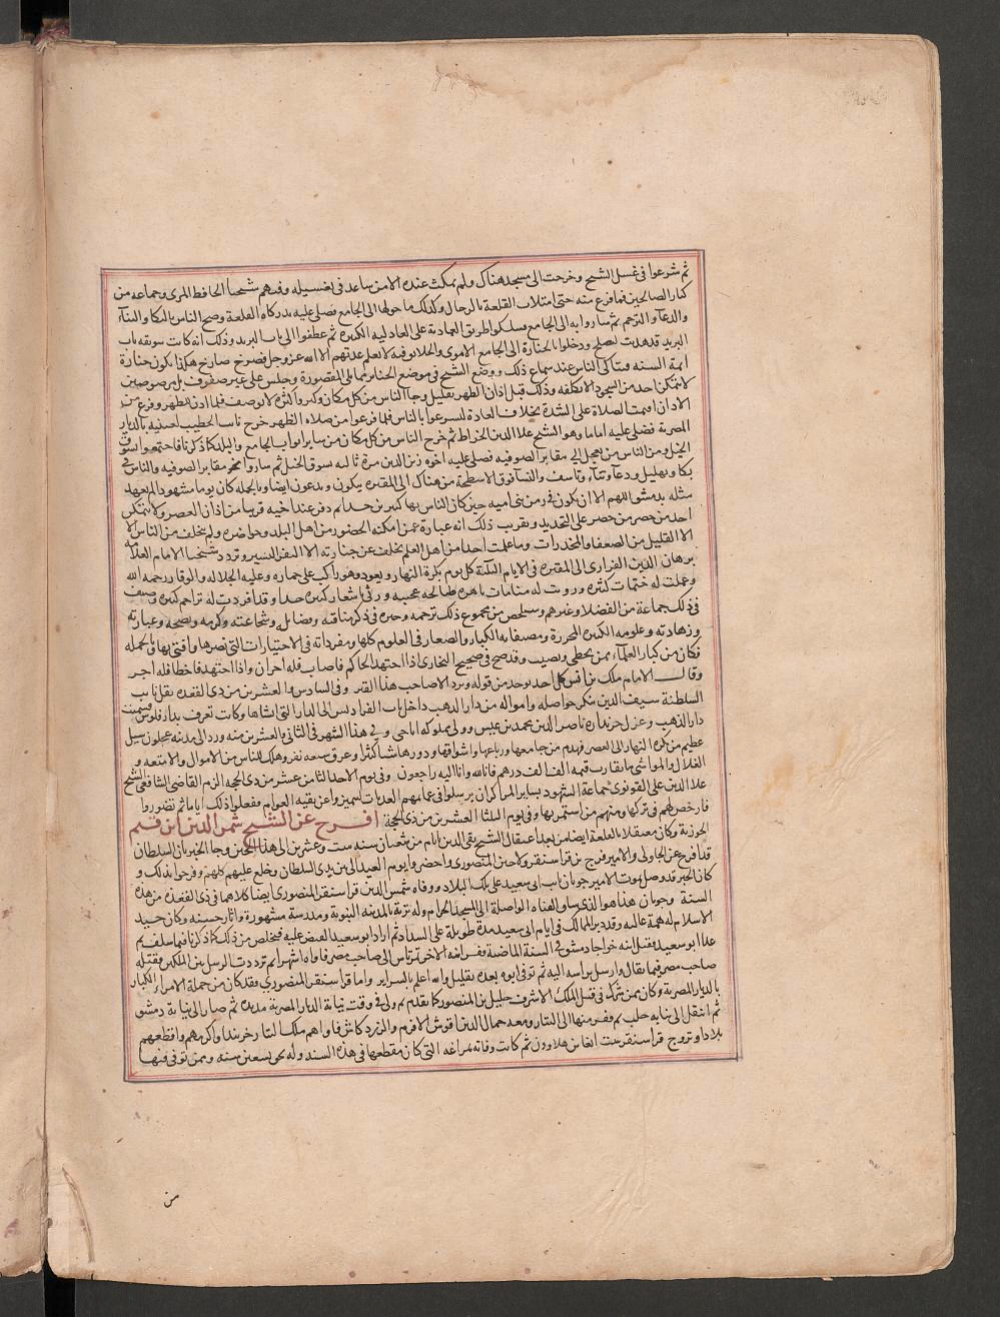 ثم شرعوا فى غسل الشيخ وخرجت الى مسجد هناك ولم يمكث عنده الا من ساعد فى تغسيله وفيهم شيخنا الحافظ المزى وجماعه من
كبار الصالحين فما فرغ منه حتى امتلات القلعة بالرجال وكذلك ما حولها الى الجامع فصلى عليه بدركاه القلعة وضج الناس بالبكا والثنآ
والدعآ والترحم ثم ساروا به الى الجامع فسلكوا طريق العمادية على العادليه الكبيره ثم عطفوا الى باب البريد وذلك ان سويقه باب
البريد قد هدمت لتصلح ودخلوا بالجنازة الى الجامع الاموى والخلايق فيه لا يعلم عدتهم الا الله عز وجل فصرخ صارخ هكذا تكون جنازة
ايمة السنه فتباكى الناس عند سماع ذلك ووضع الشيخ فى موضع الجنايز مما يلى المقصورة وجلس على غير صفوف بل مرصوصين
لا يتمكن احد من السجود الا بكلفه وذلك قبل اذان الظهر بقليل وجآ الناس من كل مكان وكثروا كثرة لا توصف فلما اذن الظهر وفرغ من
الاذان اقيمت الصلاة على السدة بخلاف العادة ليسرعوا بالناس فلما فرغوا من صلاه الظهر خرج نايب الخطيب لغيبته بالديار
المصرية فصلى عليه اماما وهو الشيخ علا الدين الخراط ثم خرج الناس من كل مكان من ساير ابواب الجامع والبلد كما ذكرنا فاجتمعوا بسوق
الخيل ومن الناس من تعجل الى مقابر الصوفيه فصلى عليه اخوه زين الدين مرة ثانيه بسوق الخيل ثم ساروا نحو مقابر الصوفيه والناس فى
بكا وتهليل ودعآ وثنآء وتاسف والنسآ فوق الاسطحة من هناك الى المقبره يبكون ويدعون ايضا وبالجملة كان يوما مشهودا لم يعهد
مثله بدمشق اللهم الا ان يكون فى زمن بنى اميه حين كان الناس بها كثيرين جدا ثم دفن عند اخيه قريبا من اذان العصر ولا يتمكن
احد من حصر من حضر على التحديد وتقريب ذلك انه عبارة عمن امكنه الحضور من اهل البلد وحواضره ولم يتخلف من الناس الا
الا القليل من الضعفا والمخدرات وما علمت احدا من اهل العلم تخلف عن جنازته الا النفر اليسير وتردد شيخنا الامام العلامه
برهان الدين الفزارى الى المقبره فى الايام الثلثة كل يوم بكرة النهار ويعود وهو راكب على حماره وعليه الجلاله والوقار رحمه الله
وعملت له ختمات كثيرة ورويت له منامات باهره صالحه عجيبه ورثى باشعار كثيره جدا وقد افردت له تراجم كثيره وصنف
فى ذلك جماعة من الفضلا وغيرهم وسيلخص من مجموع ذلك ترجمه وجيزه فى ذكر مناقبه وفضايله وشجاعته وكرمه ونصحه وعبادته
وزهادته وعلومه الكثيره المحررة ومصنفاته الكبار والصغار فى العلوم كلها ومفرداته فى الاختيارات التى نصرها وافتى بها وبالجمله
فكان من كبار العلمآء ممن يخطى ويصيب وقد صح فى صحيح البخارى اذا اجتهد الحاكم فاصاب فله اجران واذا اجتهد فاخطا فله اجر
وقال الامام ملك بن انس كل احد يوخذ من قوله ويترد الا صاحب هذا القبر وفى السادس والعشرين من ذى القعده نقل نايب
السلطنة سيف الدين تنكز حواصله وامواله من دار الذهب داخل باب الفراديس الى الدار التى انشاها وكانت تعرف بدار فلوس فسميت
دار الذهب وعزل خزنداره ناصر الدين محمد بن عيسى وولى مملوكه اباجى وفى هذا الشهر فى الثانى والعشرين منه ورد الى مدينه عجلون سيل
عظيم من بكرة النهار الى العصر فهدم من جامعها ورباعها واسواقها ودورها شيا كثيرا وغرق سبعه نفر وهلك للناس من الاموال والامتعه و
الغلال والمواشى ما يقارب قيمه الف الف درهم فانا لله وانا اليه راجعون وفى يوم الاحد الثامن عشر من ذى الحجه الزم القاضى الشافعى الشيخ
علا الدين على القونوى جماعة الشهود بساير المراكز ان يرسلوا فى عمايمهم العذبات لتميزوا عن بقيه العوام ففعلوا ذلك اياما ثم تضرروا
فارخص لهم فى تركها ومنهم من استمر بها وفى يوم الثلثا العشرين من ذى الحجة افرج عن الشيخ شمس الدين ابن قيم
الجوزية وكان معتقلا بالقلعة ايضا من بعد اعتقال الشيخ تقى الدين بايام من شعبان سنه ست وعشرين الى هذا الحين وجا الخبر بان السلطان
قد افرج عن الجاولى والامير فرج بن قراسنقر ولاجين المنصورى واحضروا يوم العيد الى بين يدى السلطان وخلع عليهم كلهم وفرحوا بذلك و
كان الخبر قد وصل بموت الامير جوبان نايب ابى سعيد على تلك البلاد ووفاه شمس الدين قراسنقر المنصورى ايضا كلاهما فى ذى القعده من هذه
السنة وجوبان هذا هو الذى ساق القناه الواصلة الى المسجد الحرام وله تربة بالمدينه النبوية ومدرسة مشهورة واثار حسنه وكان جيد
الاسلام له همة عاليه وقد دبر الممالك فى ايام ابى سعيد مدة طويلة على السداد ثم اراد ابو سعيد القبض عليه فتخلص من ذلك كما ذكرنا فيما سلف ثم
علا ابو سعيد فقتل ابنه خواجا دمشق فى السنة الماضية ففر ابنه الاخر تمرتاس الى صاحب مصر فاواه اشهرا ثم ترددت الرسل بين الملكين فقتله
صاحب مصر فيما يقال وارسل براسه اليه ثم توفى ابوه بعده بقليل والله اعلم بالسراير واما قراسنقر المنصورى فقد كان من جملة الامراء الكبار
بالديار المصرية وكان ممن شرك فى قتل الملك الاشرف خليل بن المنصور كما تقدم ثم ولى فى وقت نيابة الديار المصرية مديدة ثم صار الى نيابة دمشق
ثم انتقل الى نيابه حلب ثم فر منها الى التتار ومعه جمال الدين اقوش الافرم والزردكاش فاواهم ملك التتار خربندا واكرمهم واقطعهم
بلادا وتزوج قراسنقر بنت ابغا بن هلاوون ثم كانت وفاته بمراغه التى كان مقطعها فى هذه السنه وله نحو تسعين سنه وممن توفى فيها
من